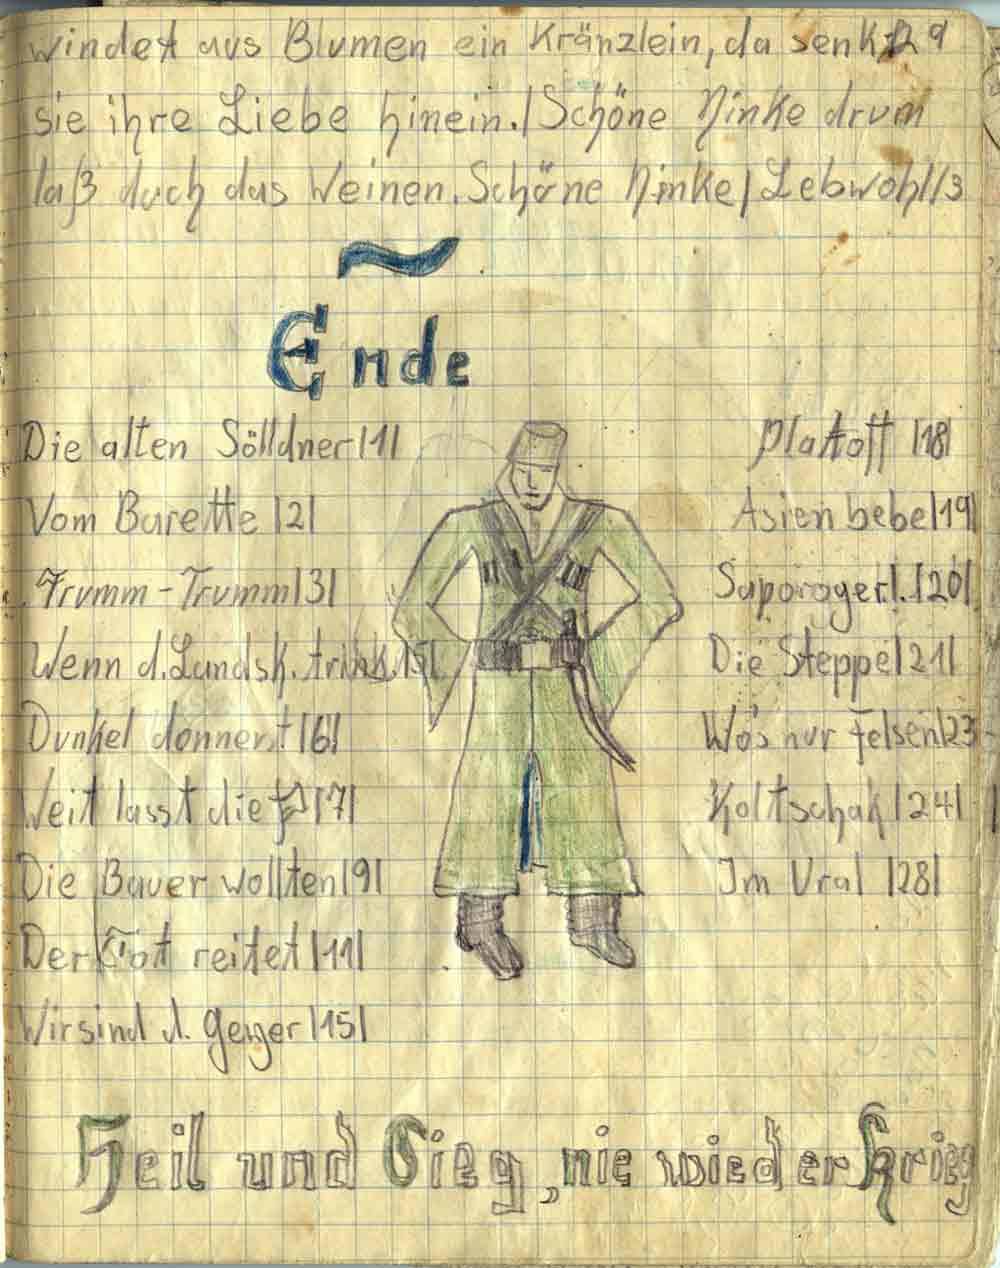 windet aus Blumen ein Kränzlein, da senkt
sie ihre Liebe hinein./Schöne Ninke drum
laß doch das Weinen. Schöne Ninke/Lebwohl//3
~
Ende
Die alten Sölldner|1|
Vom Barette |2|
Trumm-Trumm|3|
Wenn d.Landsk. trink.|5|
Dunkel donnert|6|
Weit lasst die |7|
Die Bauer wollten|9|
Der Tot reitet|11|
Wirsind d. Geyer|15|
Plattoff |18|
Asien bebe|19|
Saporoger|.|20|
Die Steppe|21|
Wo's nur Felsen|23
Koltschak|24|
Im Ural |28|
Heil und Sieg, nie wieder Krieg